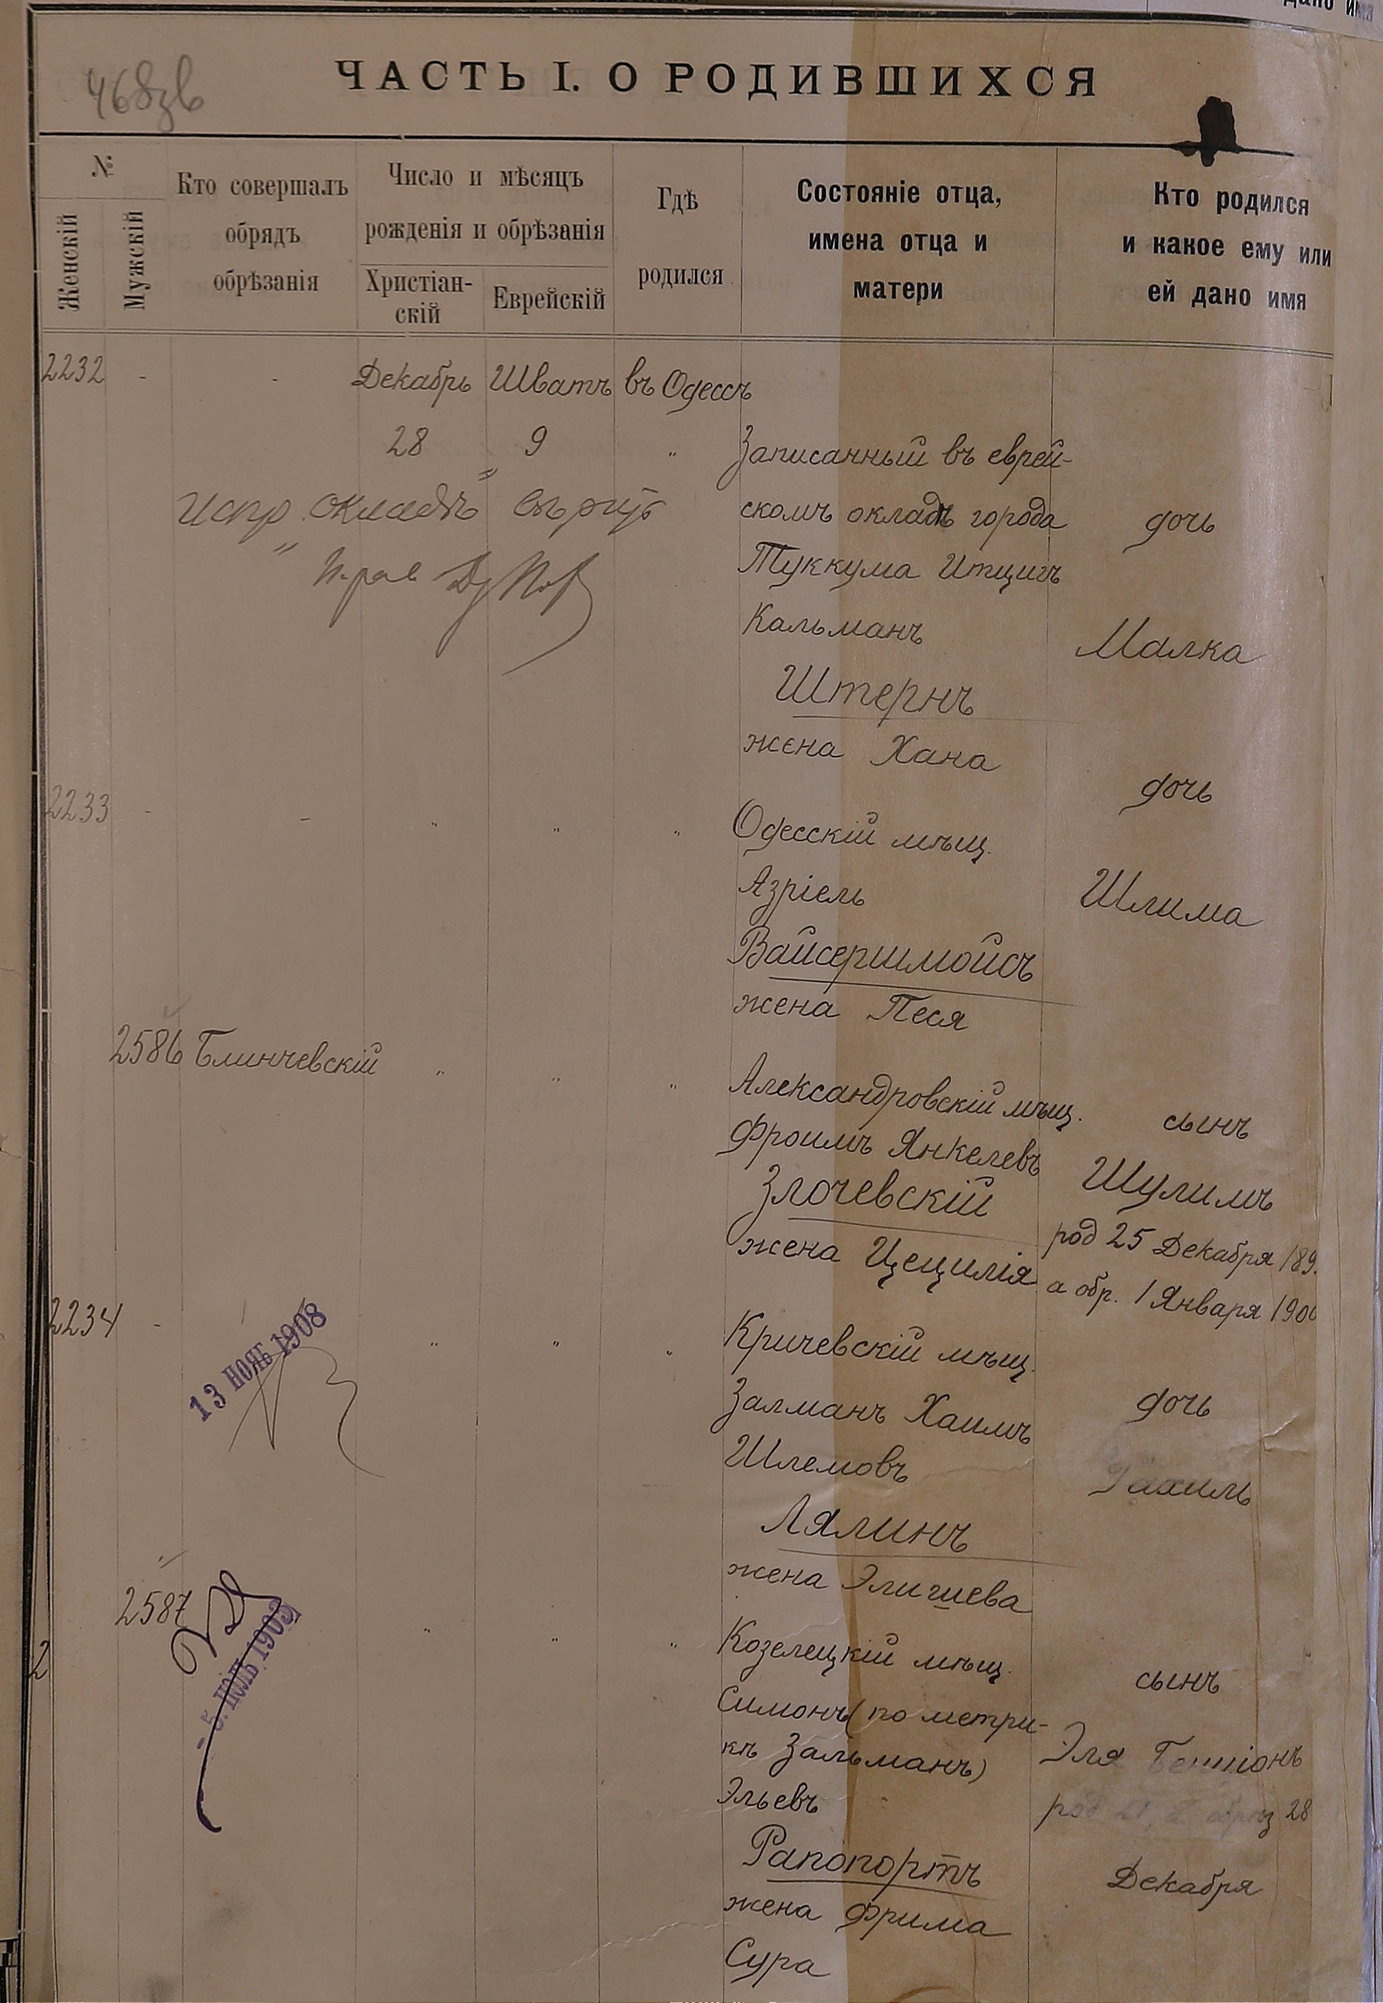 468зв
ЧАСТЬ I. О РОДИВШИХСЯ
№
Женскій
Мужскій
Кто совершалъ
обрядъ
обрѣзанія
Число и мѣсяцъ
рожденія и обрѣзанія
Христіан-
скій
Еврейскій
Гдѣ
родился
Состояніе отца,
имена отца и
матери
Кто родился
и какое ему или
ей дано имя
2232 - - Декабрь Шватъ въ Одессѣ
28 9 "
Записанный въ еврей-
скомъ окладѣ города
Туккума Итцигъ
Кальманъ
Штернъ
жена Хана
дочь
Малка
Испр. "окладѣ"
2233 - - " " "
Одесскій мѣщ.
Азріель
Вайсершмойсъ
жена Песя
дочь
Шлима
2586 Блинчевскій " " "
Александровскій мѣщ.
Фроимъ Янкелевъ
Злочевскій
жена Цецилія
сынъ
Шулимъ
род 25 Декабря 189
а обр. 1 Января 1900
2234 - " " "
13 НОЯБ 1908
Кричевскій мѣщ.
Залманъ Хаимъ
Шлемовъ
Лялинъ
жена Элигшева
дочь
Рахиль
2587 " " "
Козелецкій мѣщ.
Симонъ (по метри-
кѣ Зальманъ)
Эльевъ
Рапопортъ
жена Фрима
Сура
сынъ
Эля Бенціонъ
род обрѣз 28
Декабря
2